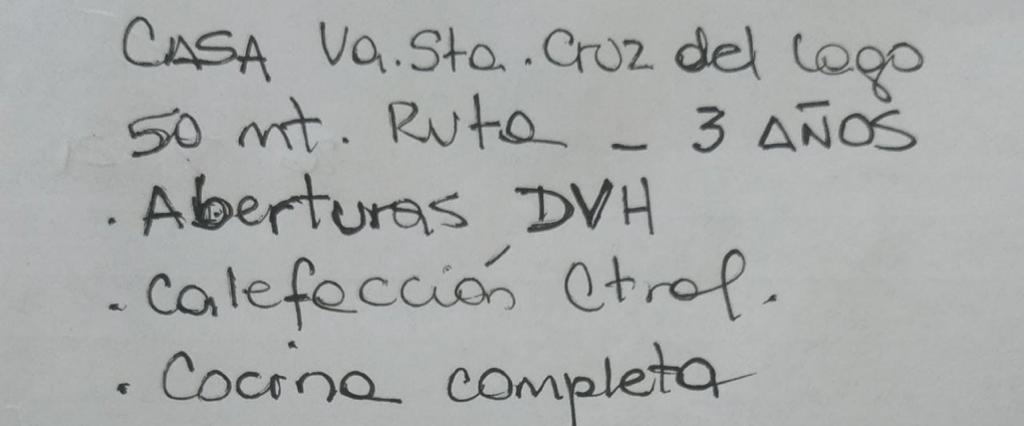 CASA Va. Sta. Cruz del Lago
50 mt. Ruta - 3 AÑOS
. Aberturas DVH
. Calefacción Ctral.
. Cocina completa